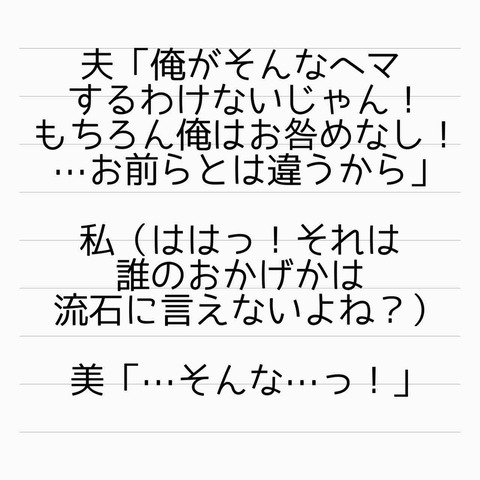 夫「俺がそんなヘマ
するわけないじゃん！
もちろん俺はお咎めなし！
…お前らとは違うから」
私（ははっ！それは
誰のおかげかは
流石に言えないよね？）
美「…そんな…っ！」